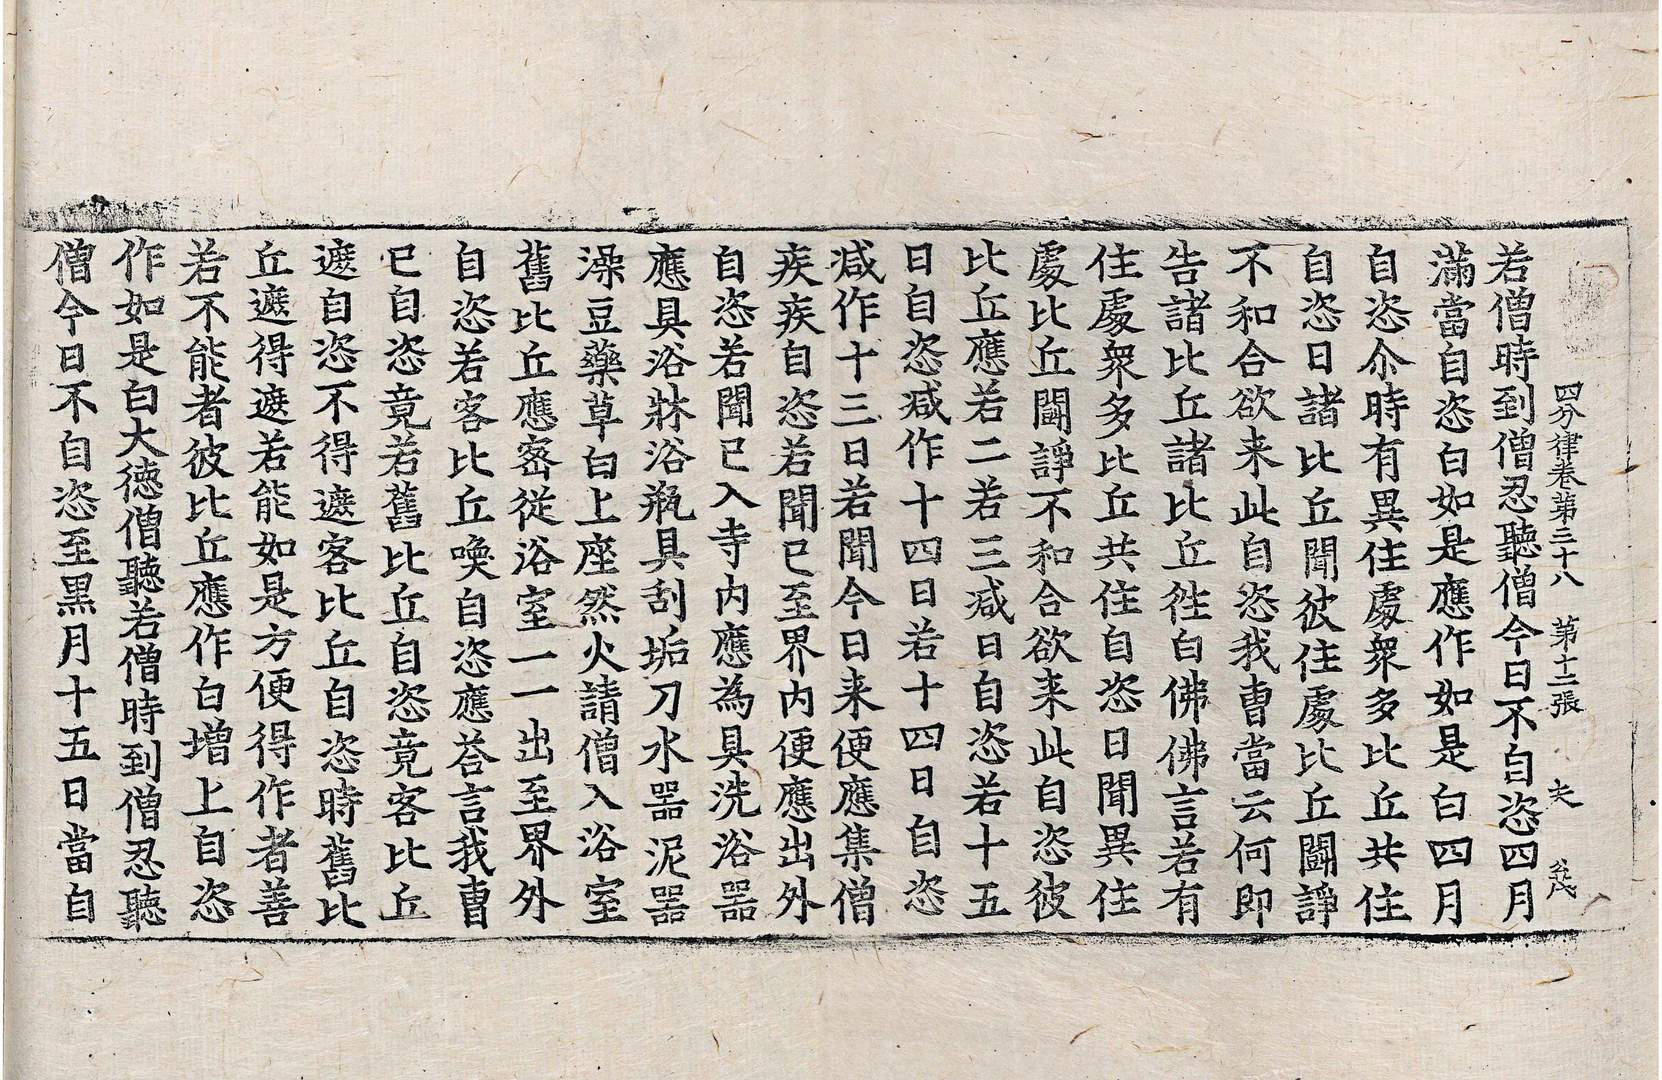 四分律卷第三十八 第十二張 夫
若僧時到僧忍聽僧今日不自恣四月
滿當自恣白如是應作如是白四月
自恣尒時有異住處衆多比丘共住
自恣日諸比丘聞彼住處比丘鬪諍
不和合欲来此自恣我曹當云何即
告諸比丘諸比丘徃白佛佛言若有
住處衆多比丘共住自恣日聞異住
處比丘鬪諍不和合欲来此自恣彼
比丘應若二若三减日自恣若十五
日自恣减作十四日若十四日自恣
减作十三日若聞今日来便應集僧
疾疾自恣若聞已至界內便應出外
自恣若聞已入寺內應為具洗浴器
應具浴牀浴瓶具刮垢刀水器泥器
澡豆藥草白上座然火請僧入浴室
舊比丘應密從浴室一一出至界外
自恣若客比丘喚自恣應荅言我曹
已自恣竟若舊比丘自恣竟客比丘
遮自恣不得遮客比丘自恣時舊比
丘遮得遮若能如是方便得作者善
若不能者彼比丘應作白增上自恣
作如是白大德僧聽若僧時到僧忍聽
僧今日不自恣至黑月十五日當自